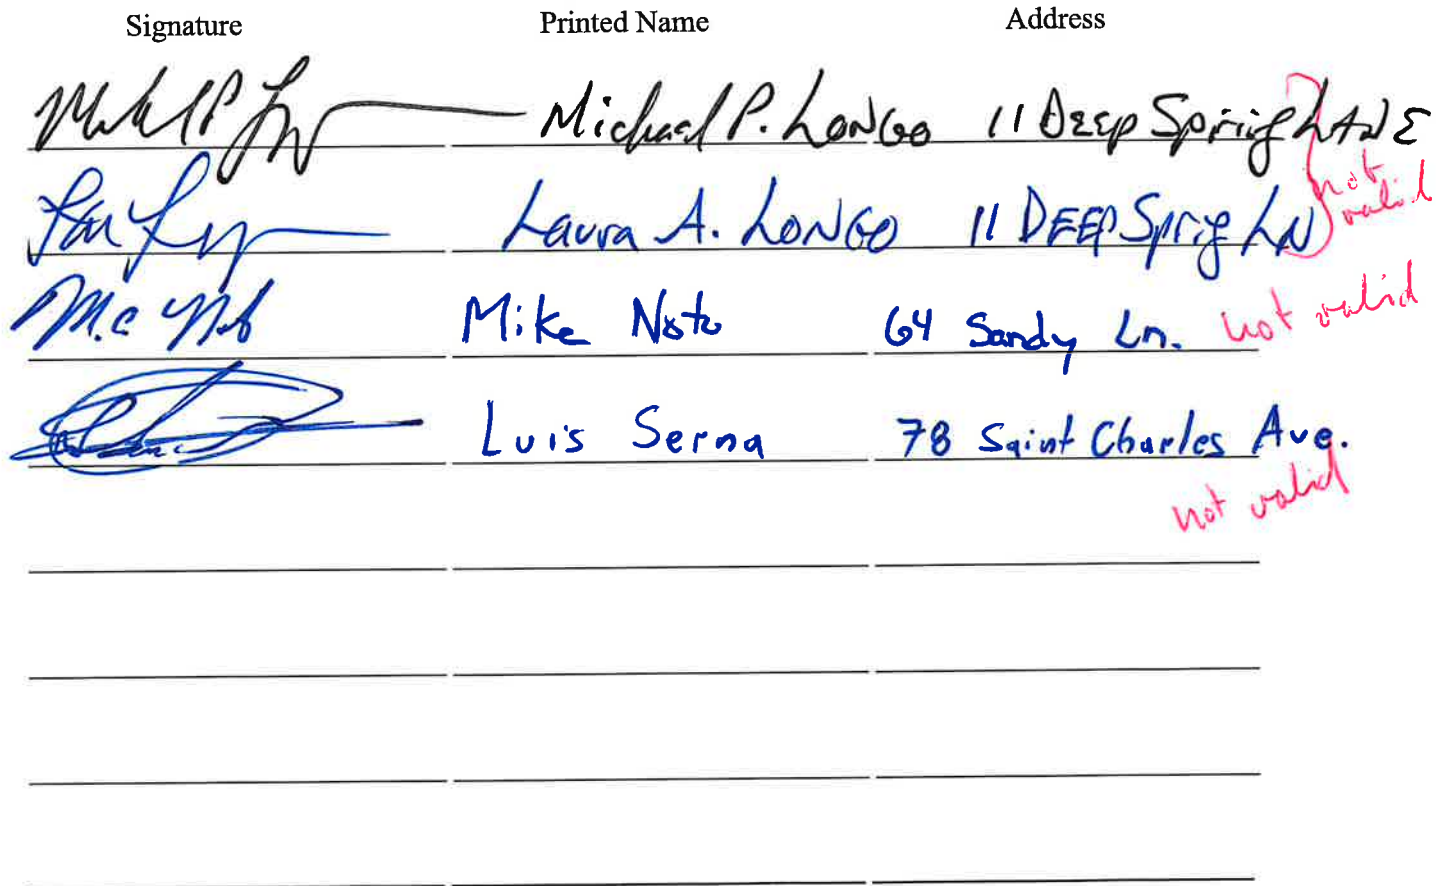 Signature Printed Name Address
Michael P. LONGO 11 DEEp Spring LANE
Laura A. LONGO 11 DEEP Sprig LN
not valid
Mike Noto 64 Sandy Ln. not valid
Luis Serna 78 Saint Charles Ave.
not valid